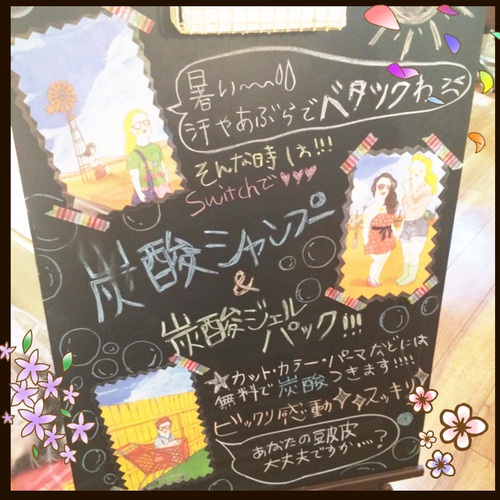 暑い〜〜
汗やあぶらでベタックわる〜
そんな時は!!!
Switchで♥♥♥
炭酸シャンプー
&
炭酸ジェル
パック!!!
★カット・カラー・パーマなどには
無料で炭酸つきます!!!!
ビックリ感動✧✧スッキリ✧
あなたの頭皮
大丈夫ですか…?